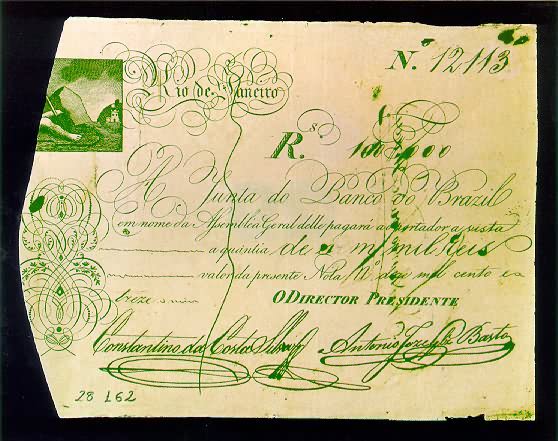 Rio de Janeiro
N.º 12113
R.s
A Junta do Banco do Brazil
em nome da Assemblea Geral delle pagará ao portador a vista
a quantia de mil reis
valor da presente Nota Doze mil cento e
treze
O DIRECTOR PRESIDENTE
Constantino da Costa Antonio Jozé Basto
28 162